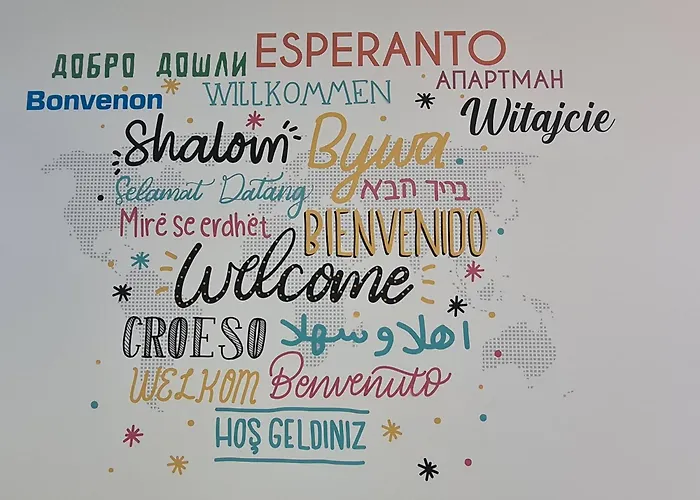 ESPERANTO
ДОБРО ДОШЛИ
АПАРТМАН
WILLKOMMEN
Bonvenon
Witajcie
Shalom
Bywa
Selamat Datang
בייך הבא
Mirë se erdhët
BIENVENIDO
Welcome
CROESO
اهلا و سهلا
WELKOM
Benvenuto
HOŞ GELDINIZ